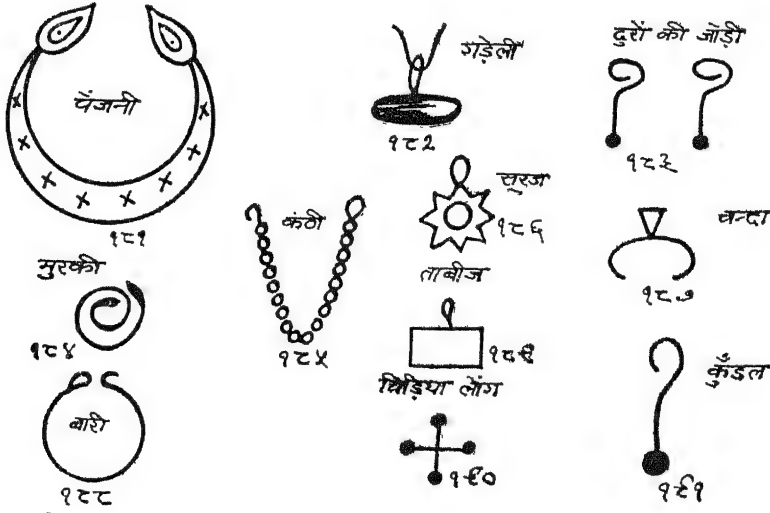 पैंजनी
१८१
गड़ेली
१८२
दुरों की जोड़ी
१८३
मुरकी
१८४
कंठी
१८५
सुरज
१८६
चन्दा
१८७
बारी
१८८
ताबीज
१८९
चिड़िया लोंग
१९०
कुँडल
१९१